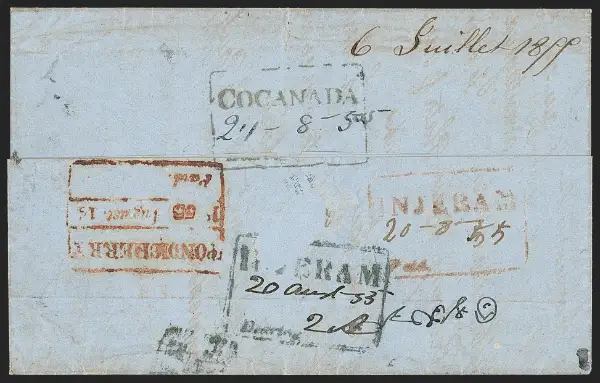 6 Juillet 1855
COCANADA
21-8-55
Paid.
August 15
55
PONDICHERRY
INJERAM
20-8-55
Paid
INJERAM
20 Augt 55
Bearing